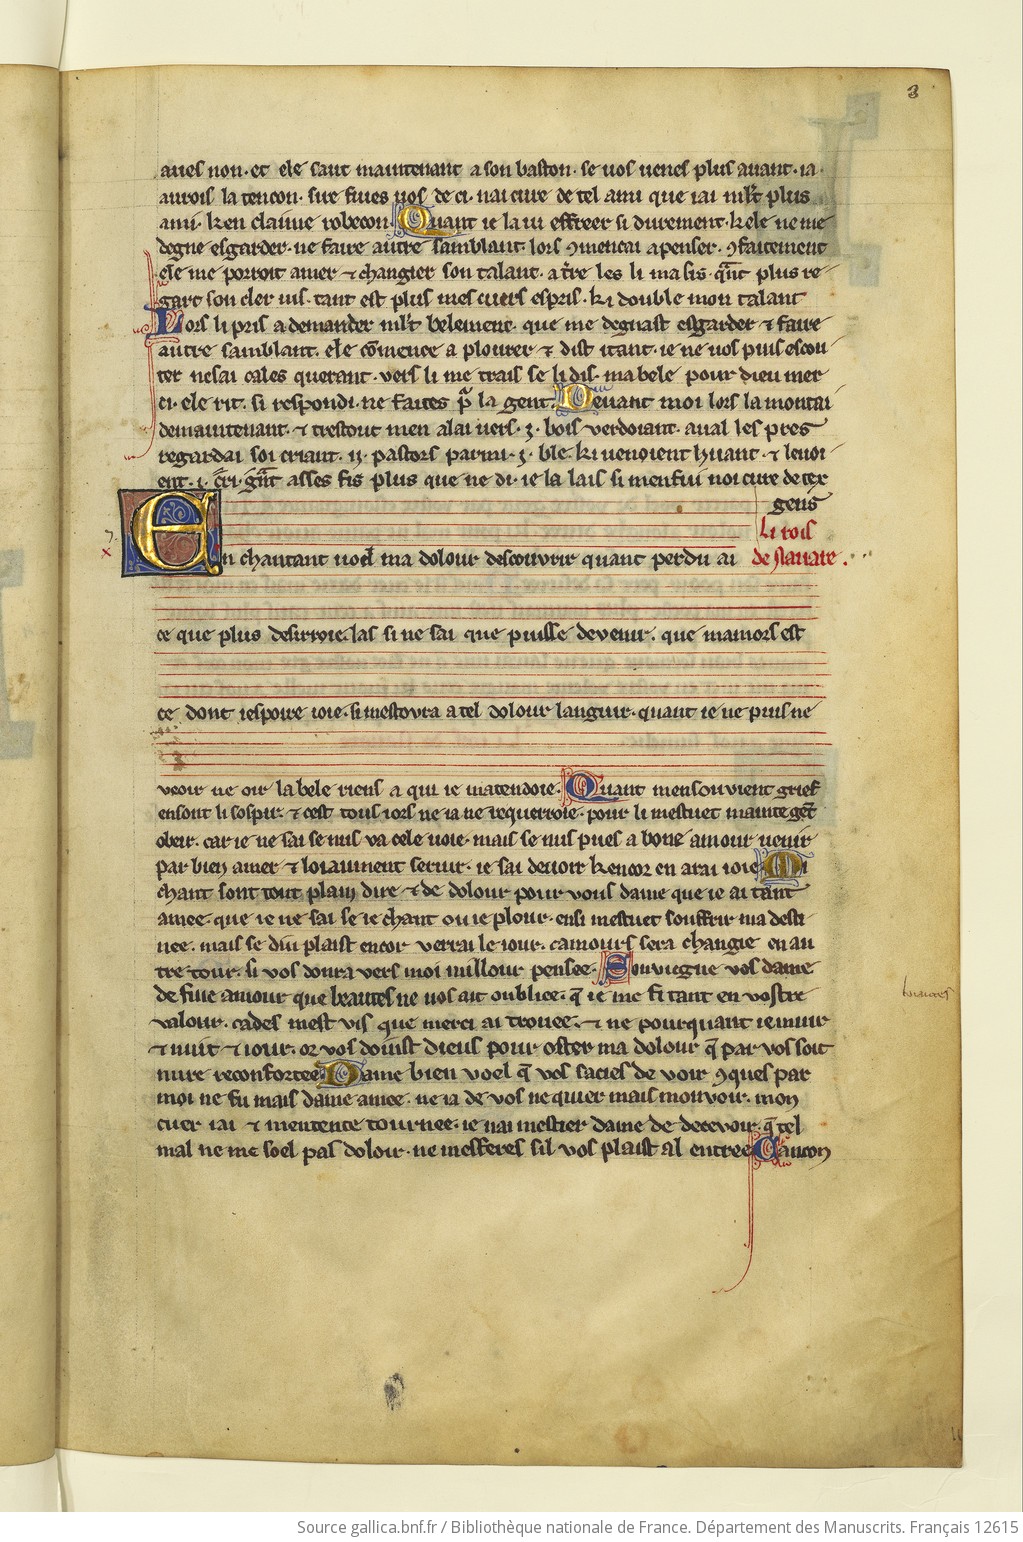 3
aues non· et ele saut maintenant a son baston· se uos uenes plus auant· ia·
aurois la tencon· sire fiues uos de ci· nai cure de tel ami que iai mlt plus
ami· ken claime robecon· Quant ie la ui effreer si durement· kele ne me
degne esgarder· ne faire autre samblant· lors ꝯmencai a penser· ꝯfaitement
ele me porroit amer ⁊ changier son talant· a tre les li masis· qant plus re
gart son cler uis· tant est plus mes cuers espris· ki double mon talant
Lors li pris a demander mlt belement· que me degnast esgarder ⁊ faire
autre samblant· ele comence a plourer ⁊ dist itant· ie ne uos puis escou
ter ne sai cales querant· vers li me trais se li dis· ma bele pour dieu mer
ci· ele rit· si respondi· ne faites pa la gent· Deuant moi lors la montai
demaintenant· ⁊ trestout men alai uers· i· bois verdoiant· aual les pres
regardai soi criant· ij· pastors parmi· i· ble· ki uenoient huant· ⁊ leuoi
ent· i· cri· gnt asses fis plus que ne di· ie la lais si menfui noi cure de tex
gens
li rois
de nauare·
En chantant uoel ma dolour descouvrir quant perdu ai
ce que plus desirroie· las si ne sai que puisse devenir· que mamors est
ce dont iespoire ioie· si mestovra a tel dolour languir· quant ie ne puis ne
veoir ne oir la bele riens a qui ie matendoie· Quant men souvient grief
en sont li sospir· ⁊ cest tous iors ne ia ne requerroie· pour li mestuet mainte gent
obeir· car ie ne sai se nus va cele uoie· mais se nus pues a bone amour uenir
par bien amer ⁊ loiaument seruir· ie sai deuoir kencor en arai ioie Mi
chant sont tout plain dire ⁊ de dolour pour vous dame que ie ai tant
amee· que ie ne sai se ie chant ou ie plour· ensi mestuet souffrir ma desti
nee· mais se diu plaist encor verrai le iour· camours sera changie en au
tre tour· si vos donra vers moi millour pensee· Souviegne vos dame
de fine amour que beautes ne uos ait oubliee· q ie me fi tant en vostre
valour· cades mest vis que merci ai trouee· ⁊ ne pourquant ie muir
⁊ nuit ⁊ iour· or vos doinst dieus pour oster ma dolour q par vos soit
mire reconfortee Dame bien voel q vos sacies de voir ꝯques par
moi ne fu mais dame amee· ne ia de vos ne quier mais mouvoir· mon
cuer iai ⁊ mentente tournee· ie nai mestier dame de decevoir· q tel
mal ne me soel pas doloir· ne mesferes sil vos plaist al entree Cancon
Source gallica.bnf.fr / Bibliothèque nationale de France. Département des Manuscrits. Français 12615